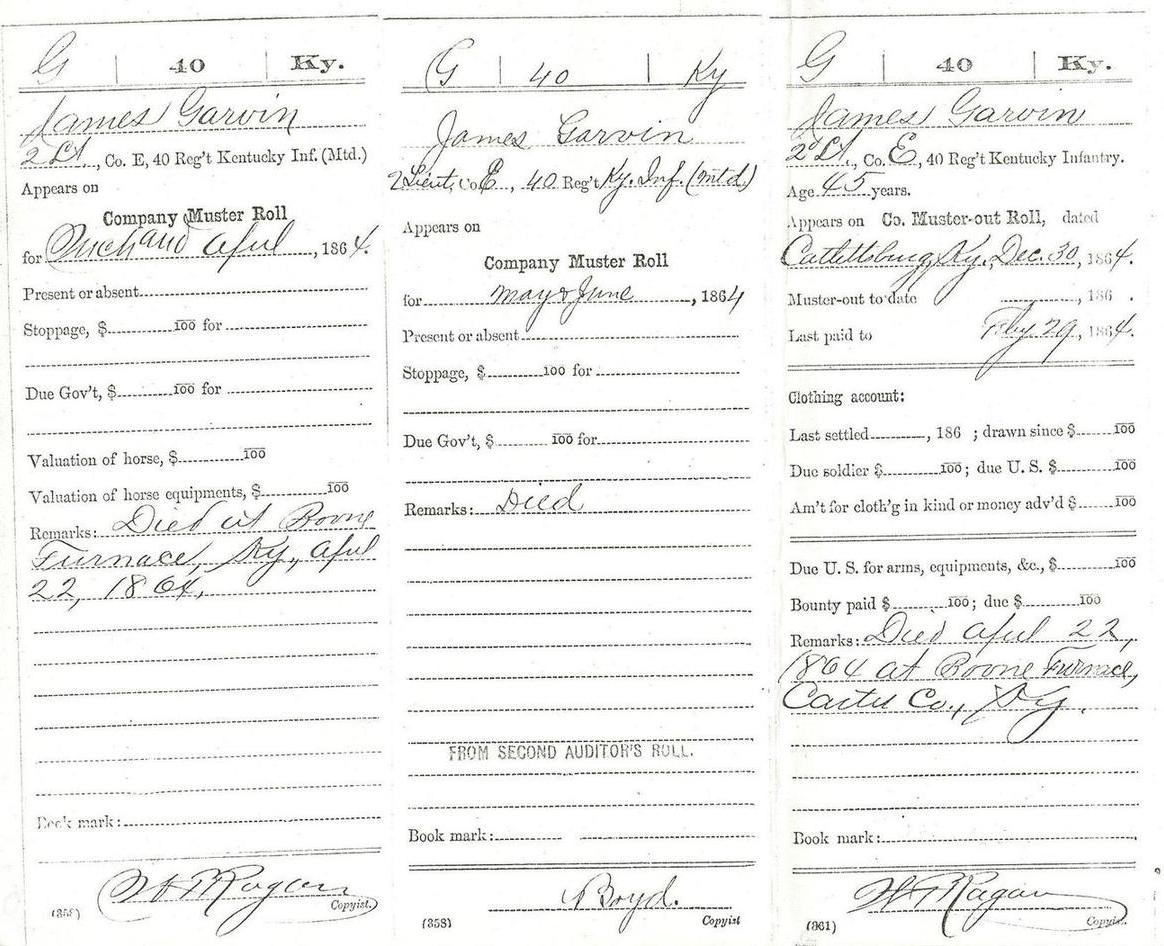 G | 40 | Ky.
James Garvin
2 Lt., Co. E, 40 Reg't Kentucky Inf. (Mtd.)
Appears on
Company Muster Roll
for March and April, 1864.
Present or absent
Stoppage, $ 100 for
Due Gov't, $ 100 for
Valuation of horse, $ 100
Valuation of horse equipments, $ 100
Remarks: Died at Boone
Furnace, Ky, April
22, 1864.
Book mark:
Ragan
(358) Copyist.
G | 40 | Ky
James Garvin
2 Lieut, Co. E, 40 Reg't Ky. Inf. (Mtd.)
Appears on
Company Muster Roll
for May & June, 1864
Present or absent
Stoppage, $ 100 for
Due Gov't, $ 100 for
Remarks: Died
FROM SECOND AUDITOR'S ROLL.
Book mark:
Boyd.
(358) Copyist
G | 40 | Ky.
James Garvin
2d Lt., Co. E, 40 Reg't Kentucky Infantry.
Age 45 years.
Appears on Co. Muster-out Roll, dated
Catlettsburg, Ky., Dec. 30, 1864.
Muster-out to date , 186 .
Last paid to Feby 29, 1864.
Clothing account:
Last settled , 186 ; drawn since $ 100
Due soldier $ 100; due U. S. $ 100
Am't for cloth'g in kind or money adv'd $ 100
Due U. S. for arms, equipments, &c., $ 100
Bounty paid $ 100; due $ 100
Remarks: Died April 22,
1864 at Boone Furnace,
Carter Co., Ky.
Book mark:
Ragan
(361) Copyist.